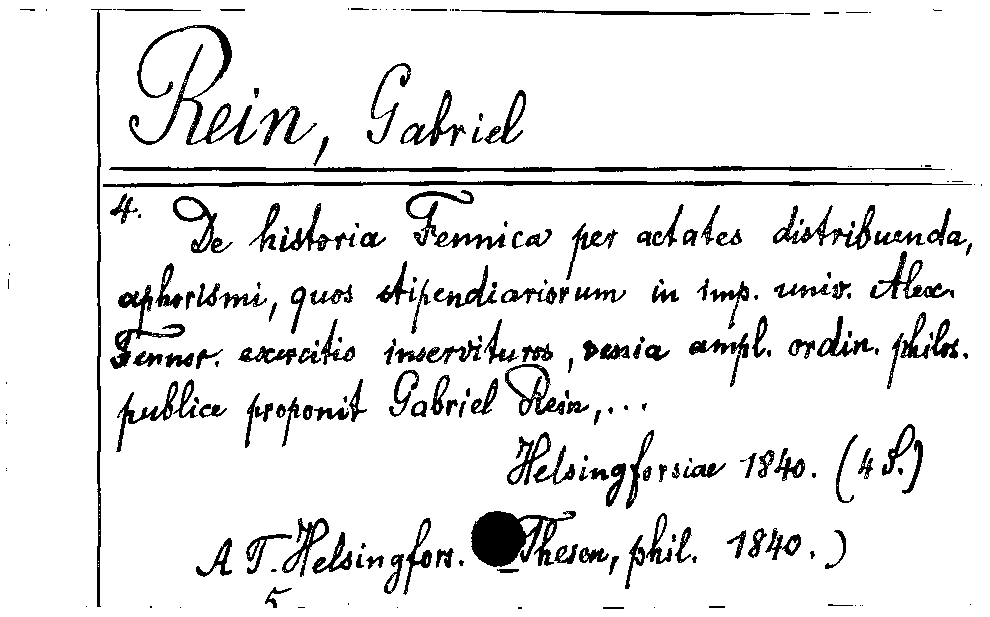 Rein, Gabriel
4. De historia Fennica per aetates distribuenda,
aphorismi, quos stipendiariorum in imp. univ. Alex.
Fennor. exercitio inservituros, venia ampl. ordin. philos.
publice proponit Gabriel Rein,...
Helsingforsiae 1840. (4 S.)
A T. Helsingfors. Thesen, phil. 1840.)
5